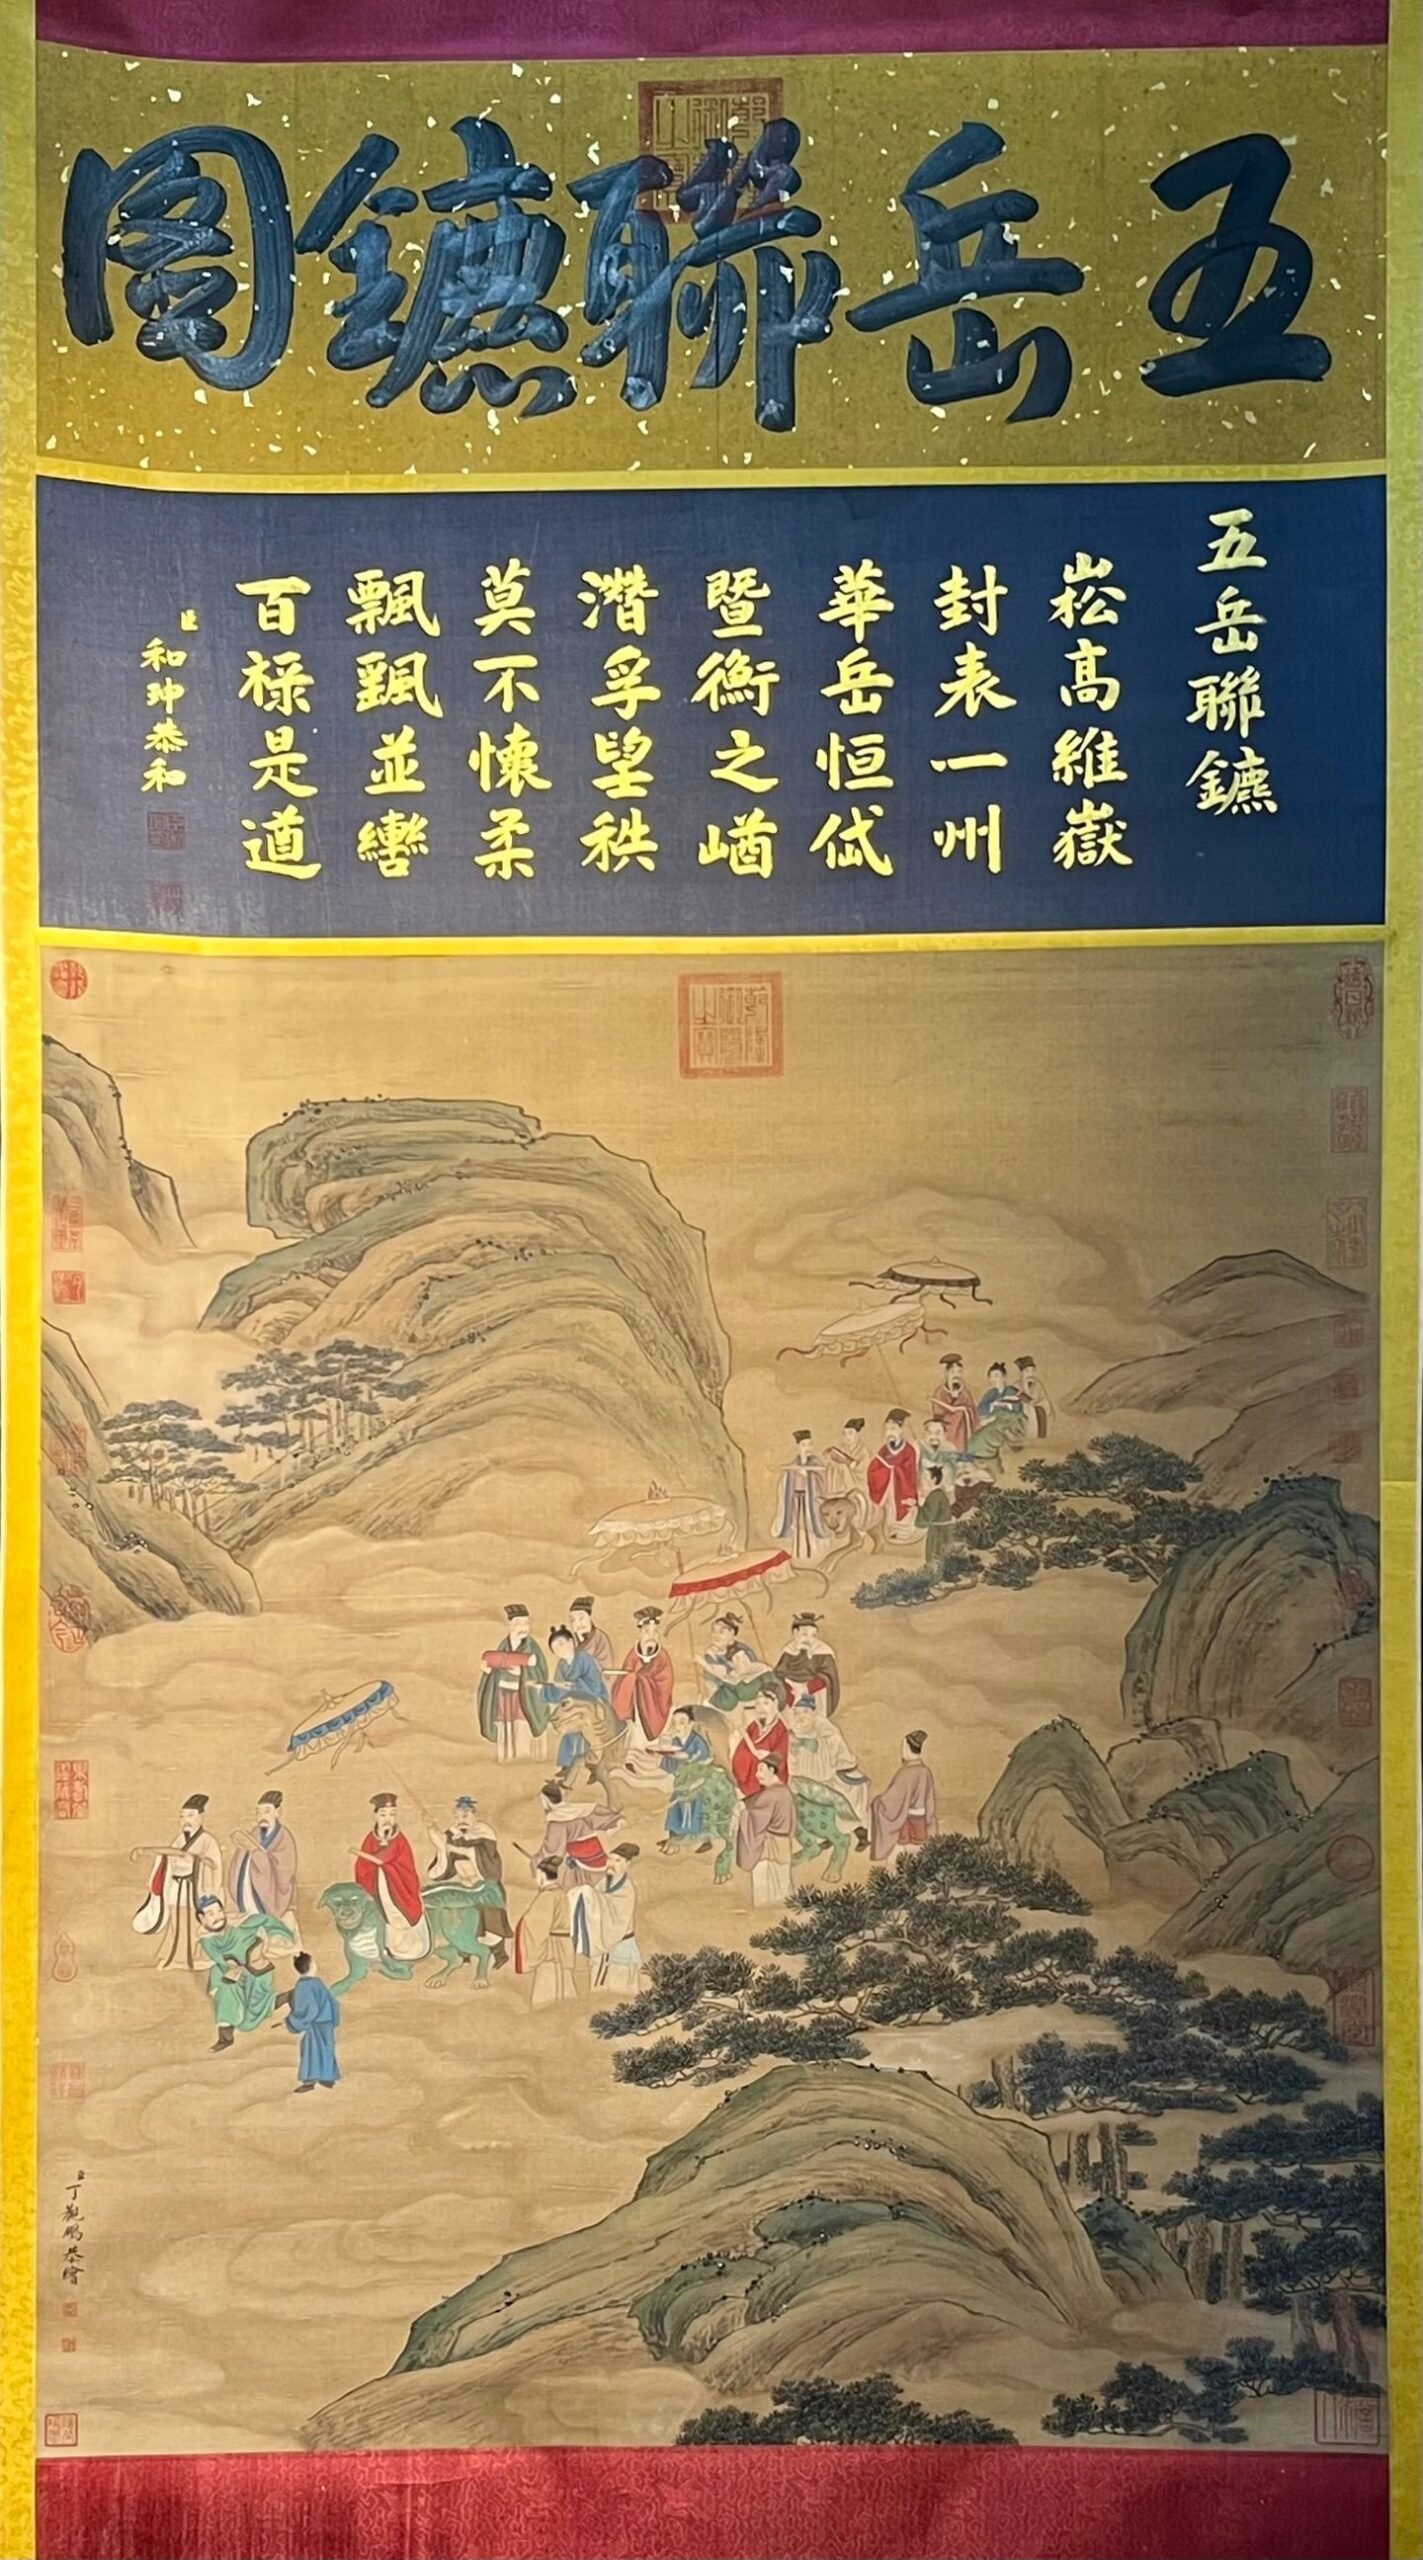 五岳聯鑣圖
五岳聯鑣
崧高維嶽
封表一州
華岳恒岱
暨衡之嶠
潛孚望秩
莫不懷柔
飄飄並轡
百祿是遒
臣和珅恭和
乾隆御覽之寶
臣丁觀鵬恭繪